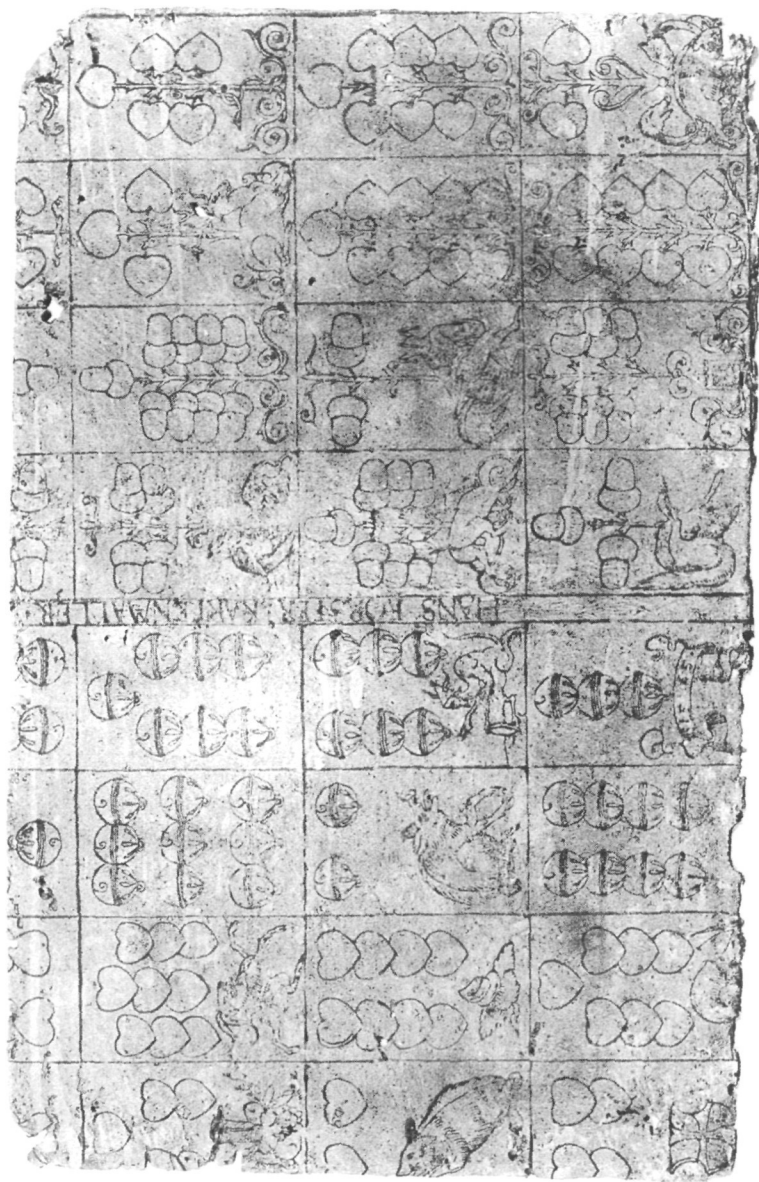 HANS FORSTER KARTENMALLER